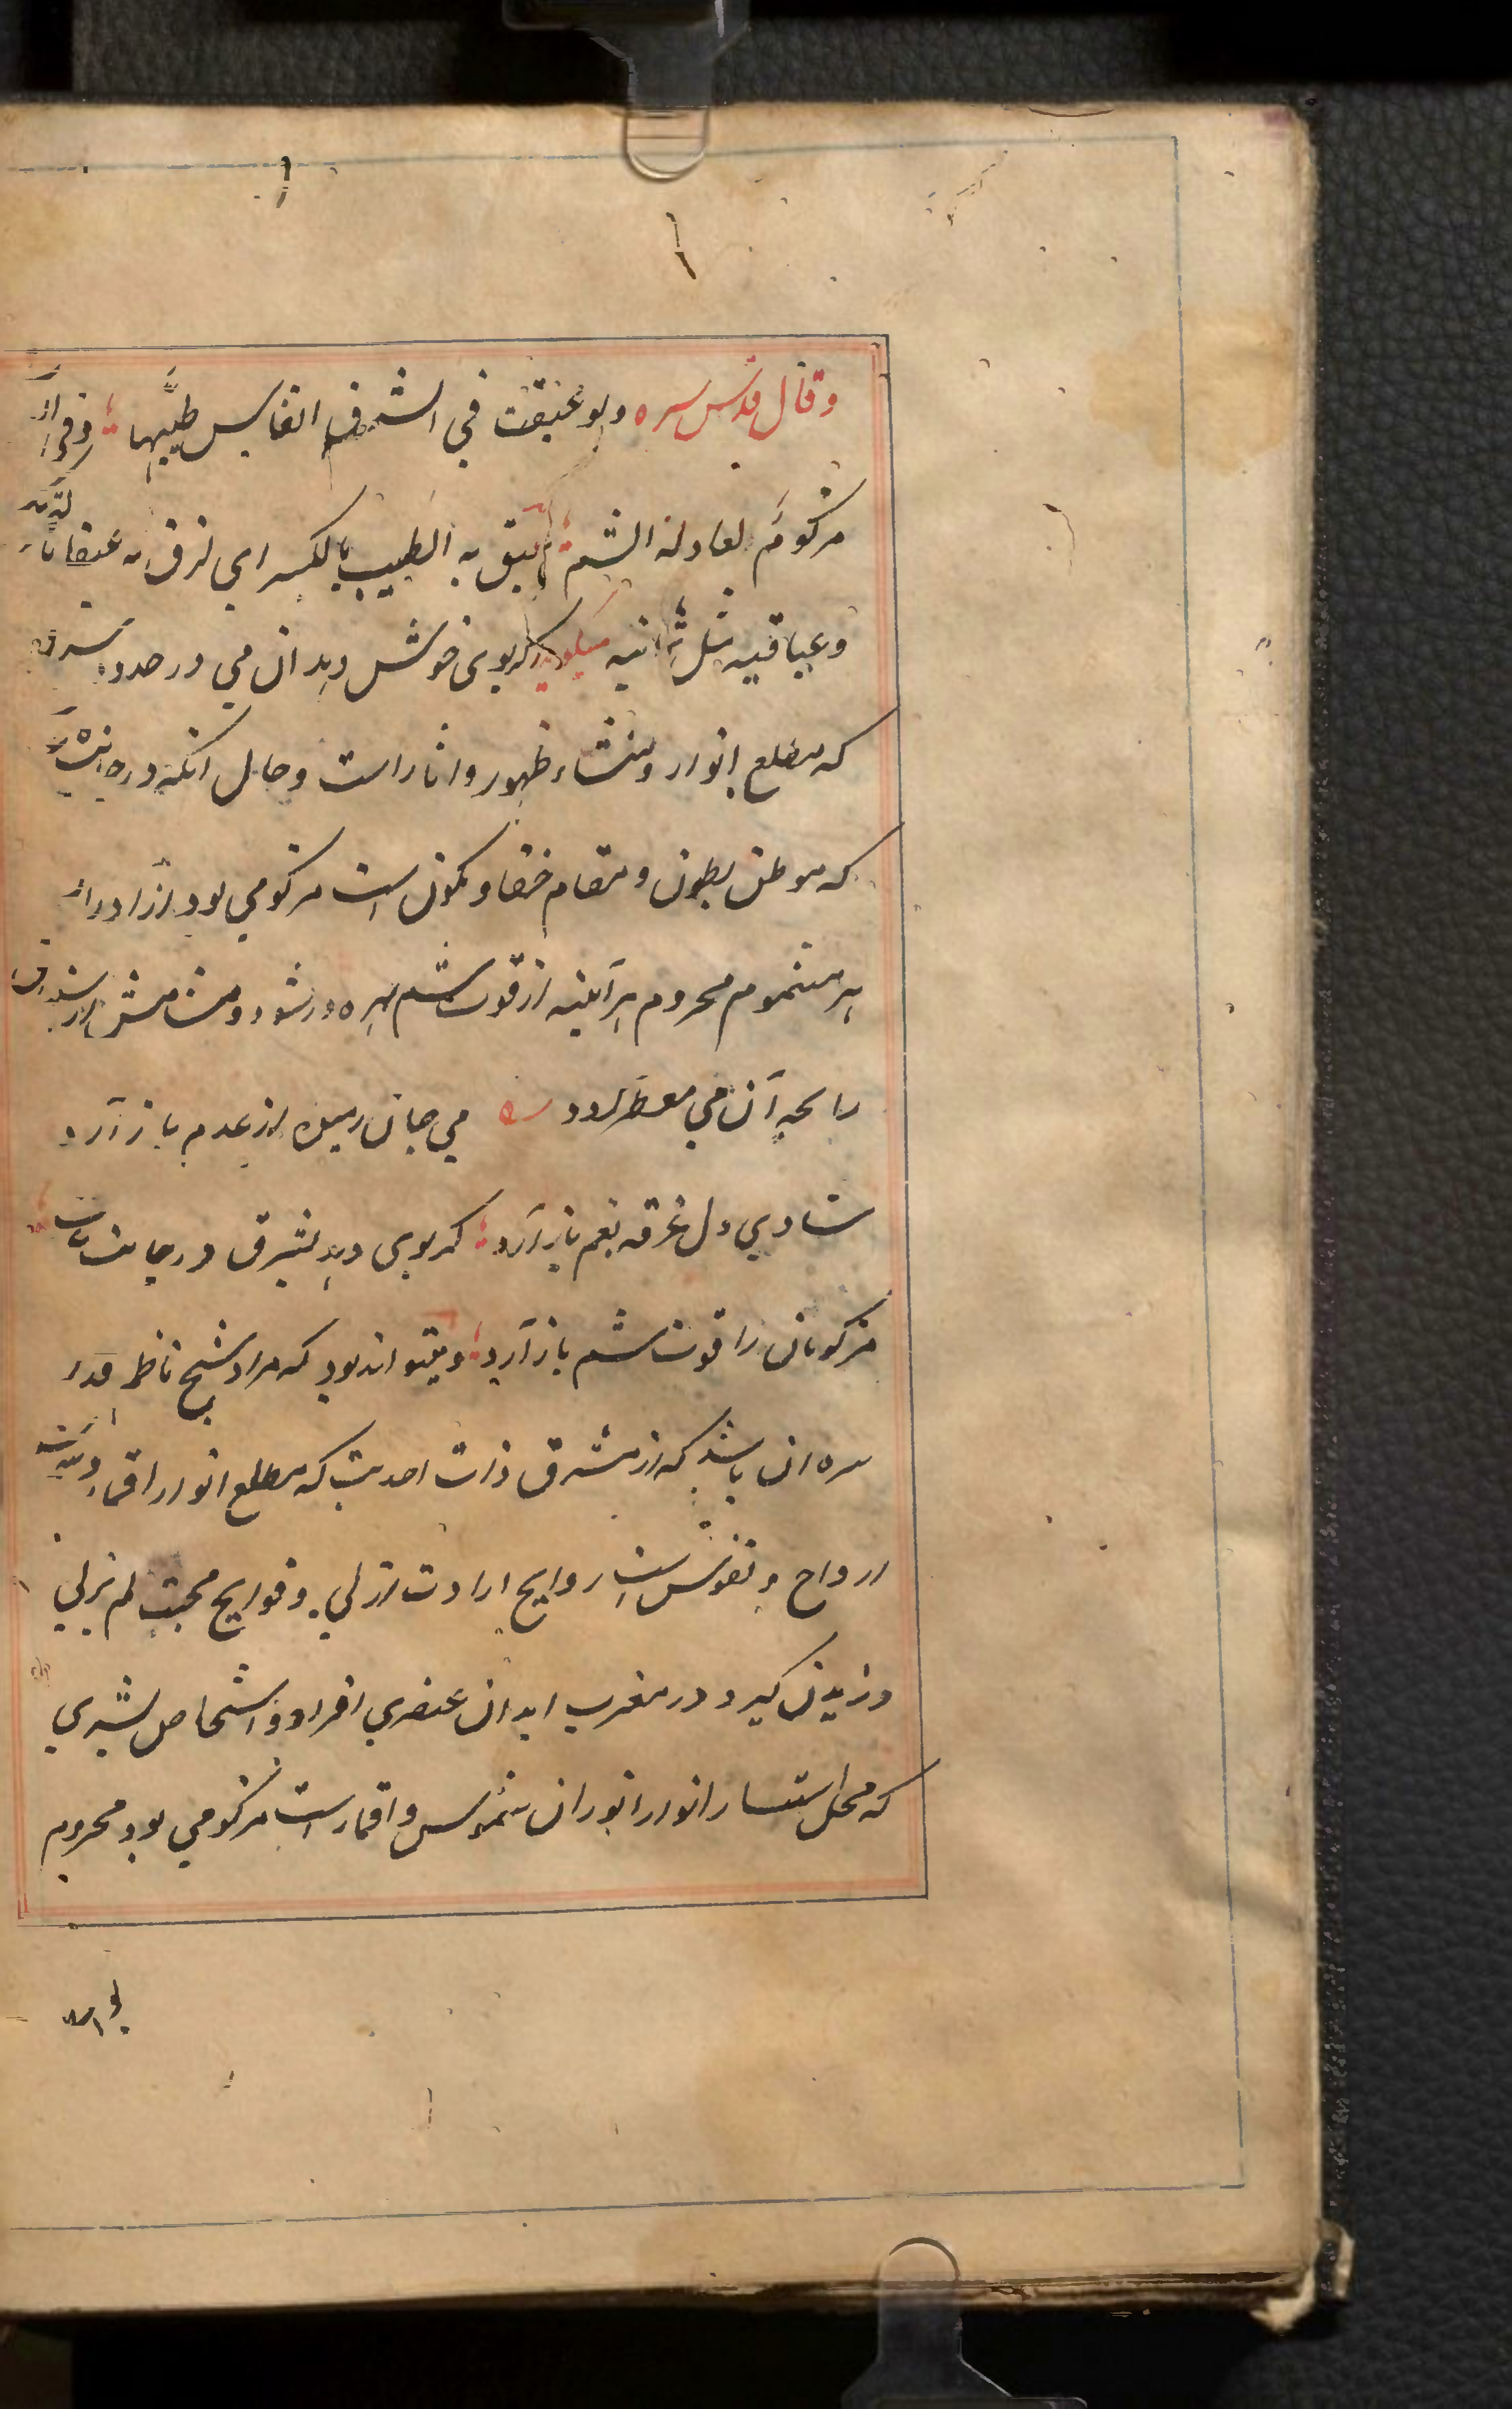 وقال قدس سره ولو عبقت في الشرق انفاس طيبها ؛ وفي الغرب
مزكوم لعاد له الشم ؛ عبق به الطيب بالكسر اي لزق به عبقا بالتحريك
وعباقية مثل ثمانية میگوید اگر بوی خوش دهد ان می در حدود شرق
که مطلع انوار و منشاء ظهور واثار است و حال آنکه در جانب غرب
که موطن بطون و مقام خفا و کمون است مزکومی بود از ادراک
هر مشموم محروم هرآینه از قوت شم بهره ور شود و مشامش از استنشاق
رایحه آن می معطر گردد می جان رمیده از عدم باز آرد
شادی دل غرقه بغم باز آرد ؛ گر بوی دهد بشرق در جانب غرب
مزکومان را قوت شم باز آرد ؛ و میتواند بود که مراد شیخ ناظم قدس
سره ان باشد که از مشرق ذات احدیت که مطلع انوار اقمار
ارواح و نفوس است روایح ارادت ازلی و فوایح محبت لم یزلی
وزیدن گیرد و در مغرب ابدان عنصری افراد و اشخاص بشری
که محل استتار انوار ان شموس و اقمار است مزکومی بود محروم